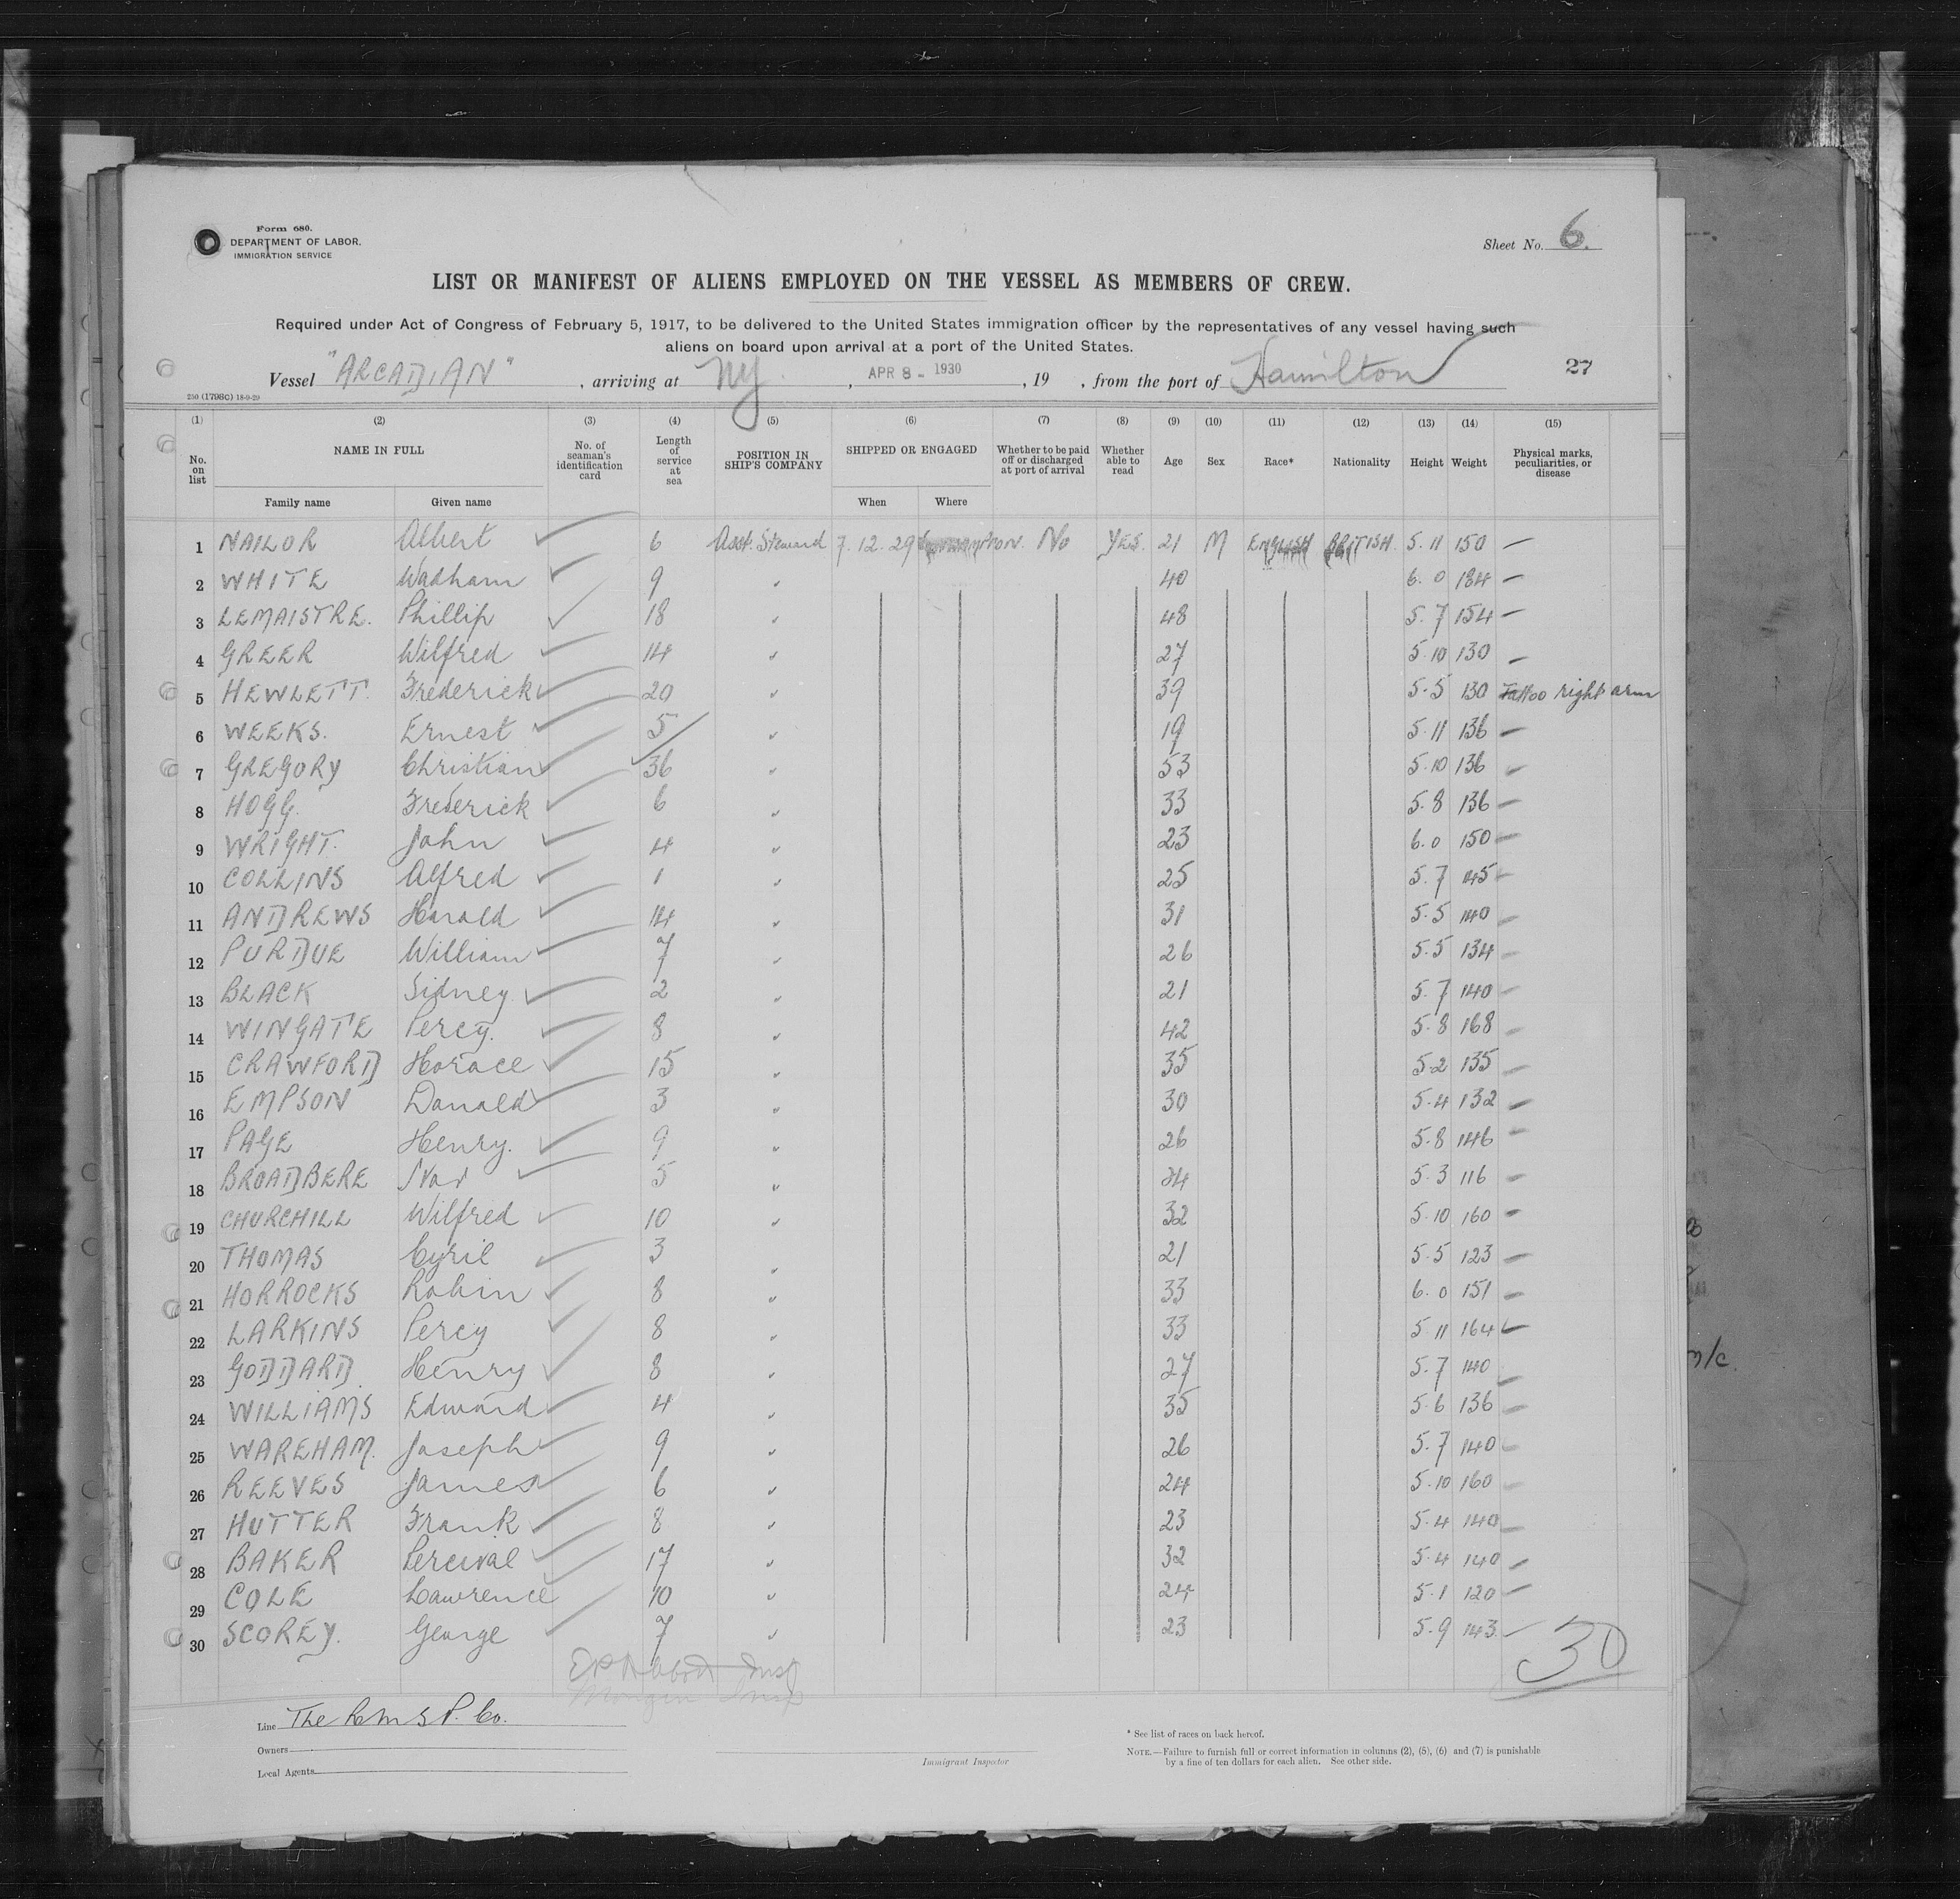 Form 680.
DEPARTMENT OF LABOR,
IMMIGRATION SERVICE
Sheet No. 6.
LIST OR MANIFEST OF ALIENS EMPLOYED ON THE VESSEL AS MEMBERS OF CREW.
Required under Act of Congress of February 5, 1917, to be delivered to the United States immigration officer by the representatives of any vessel having such
aliens on board upon arrival at a port of the United States.
Vessel "ARCADIAN", arriving at NY, APR 8 - 1930, 19 , from the port of Hamilton 27
250 (1798C) 18-9-29
(1) (2) (3) (4) (5) (6) (7) (8) (9) (10) (11) (12) (13) (14) (15)
No. on list NAME IN FULL No. of seaman's identification card Length of service at sea POSITION IN SHIP'S COMPANY SHIPPED OR ENGAGED Whether to be paid off or discharged at port of arrival Whether able to read Age Sex Race* Nationality Height Weight Physical marks, peculiarities, or disease
Family name Given name When Where
1 NAILOR Albert 6 Asst. Steward 7.12.29 No YES. 21 M ENGLISH BRITISH. 5.11 150 —
2 WHITE Wadham 9 " 40 6.0 184 —
3 LEMAISTRE. Phillip 18 " 48 5.7 154 —
4 GREER Wilfred 14 " 27 5.10 130 —
5 HEWLETT. Frederick 20 " 39 5.5 130 Tattoo right arm
6 WEEKS. Ernest 5 " 19 5.11 136 —
7 GREGORY Christian 36 " 53 5.10 136 —
8 HOGG. Frederick 6 " 33 5.8 136 —
9 WRIGHT. John 4 " 23 6.0 150 —
10 COLLINS Alfred 1 " 25 5.7 145 —
11 ANDREWS Harald 14 " 31 5.5 140 —
12 PURDUE William 7 " 26 5.5 134 —
13 BLACK Sidney. 2 " 21 5.7 140 —
14 WINGATE Percy. 8 " 42 5.8 168 —
15 CRAWFORD Horace 15 " 35 5.2 135 —
16 EMPSON Donald 3 " 30 5.4 132 —
17 PAGE Henry. 9 " 26 5.8 146 —
18 BROADBERE 5 " 24 5.3 116 —
19 CHURCHILL Wilfred 10 " 32 5.10 160 —
20 THOMAS Cyril 3 " 21 5.5 123 —
21 HORROCKS Robin 8 " 33 6.0 151 —
22 LARKINS Percy 8 " 33 5.11 164 —
23 GODDARD. Henry 8 " 27 5.7 140 —
24 WILLIAMS Edward 4 " 35 5.6 136 —
25 WAREHAM. Joseph 9 " 26 5.7 140 —
26 REEVES James 6 " 24 5.10 160 —
27 HUTTER Frank 8 " 23 5.4 140 —
28 BAKER Percival 17 " 32 5.4 140 —
29 COLE Lawrence 10 " 24 5.1 120 —
30 SCOREY. George 7 " 23 5.9 143 —
30
Insp
Insp
Line The R.M.S.P. Co.
Owners
Local Agents
Immigrant Inspector
* See list of races on back hereof.
NOTE.—Failure to furnish full or correct information in columns (2), (5), (6) and (7) is punishable
by a fine of ten dollars for each alien. See other side.